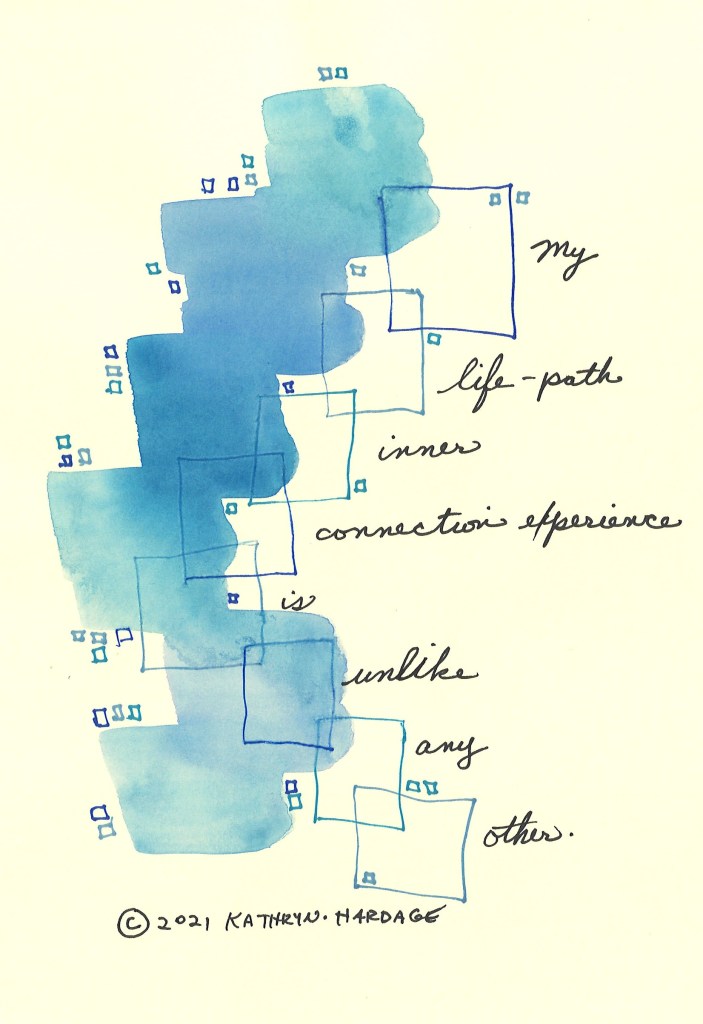 My
life-path
inner
connection experience
is
unlike
any
other.
© 2021 KATHRYN. HARDAGE